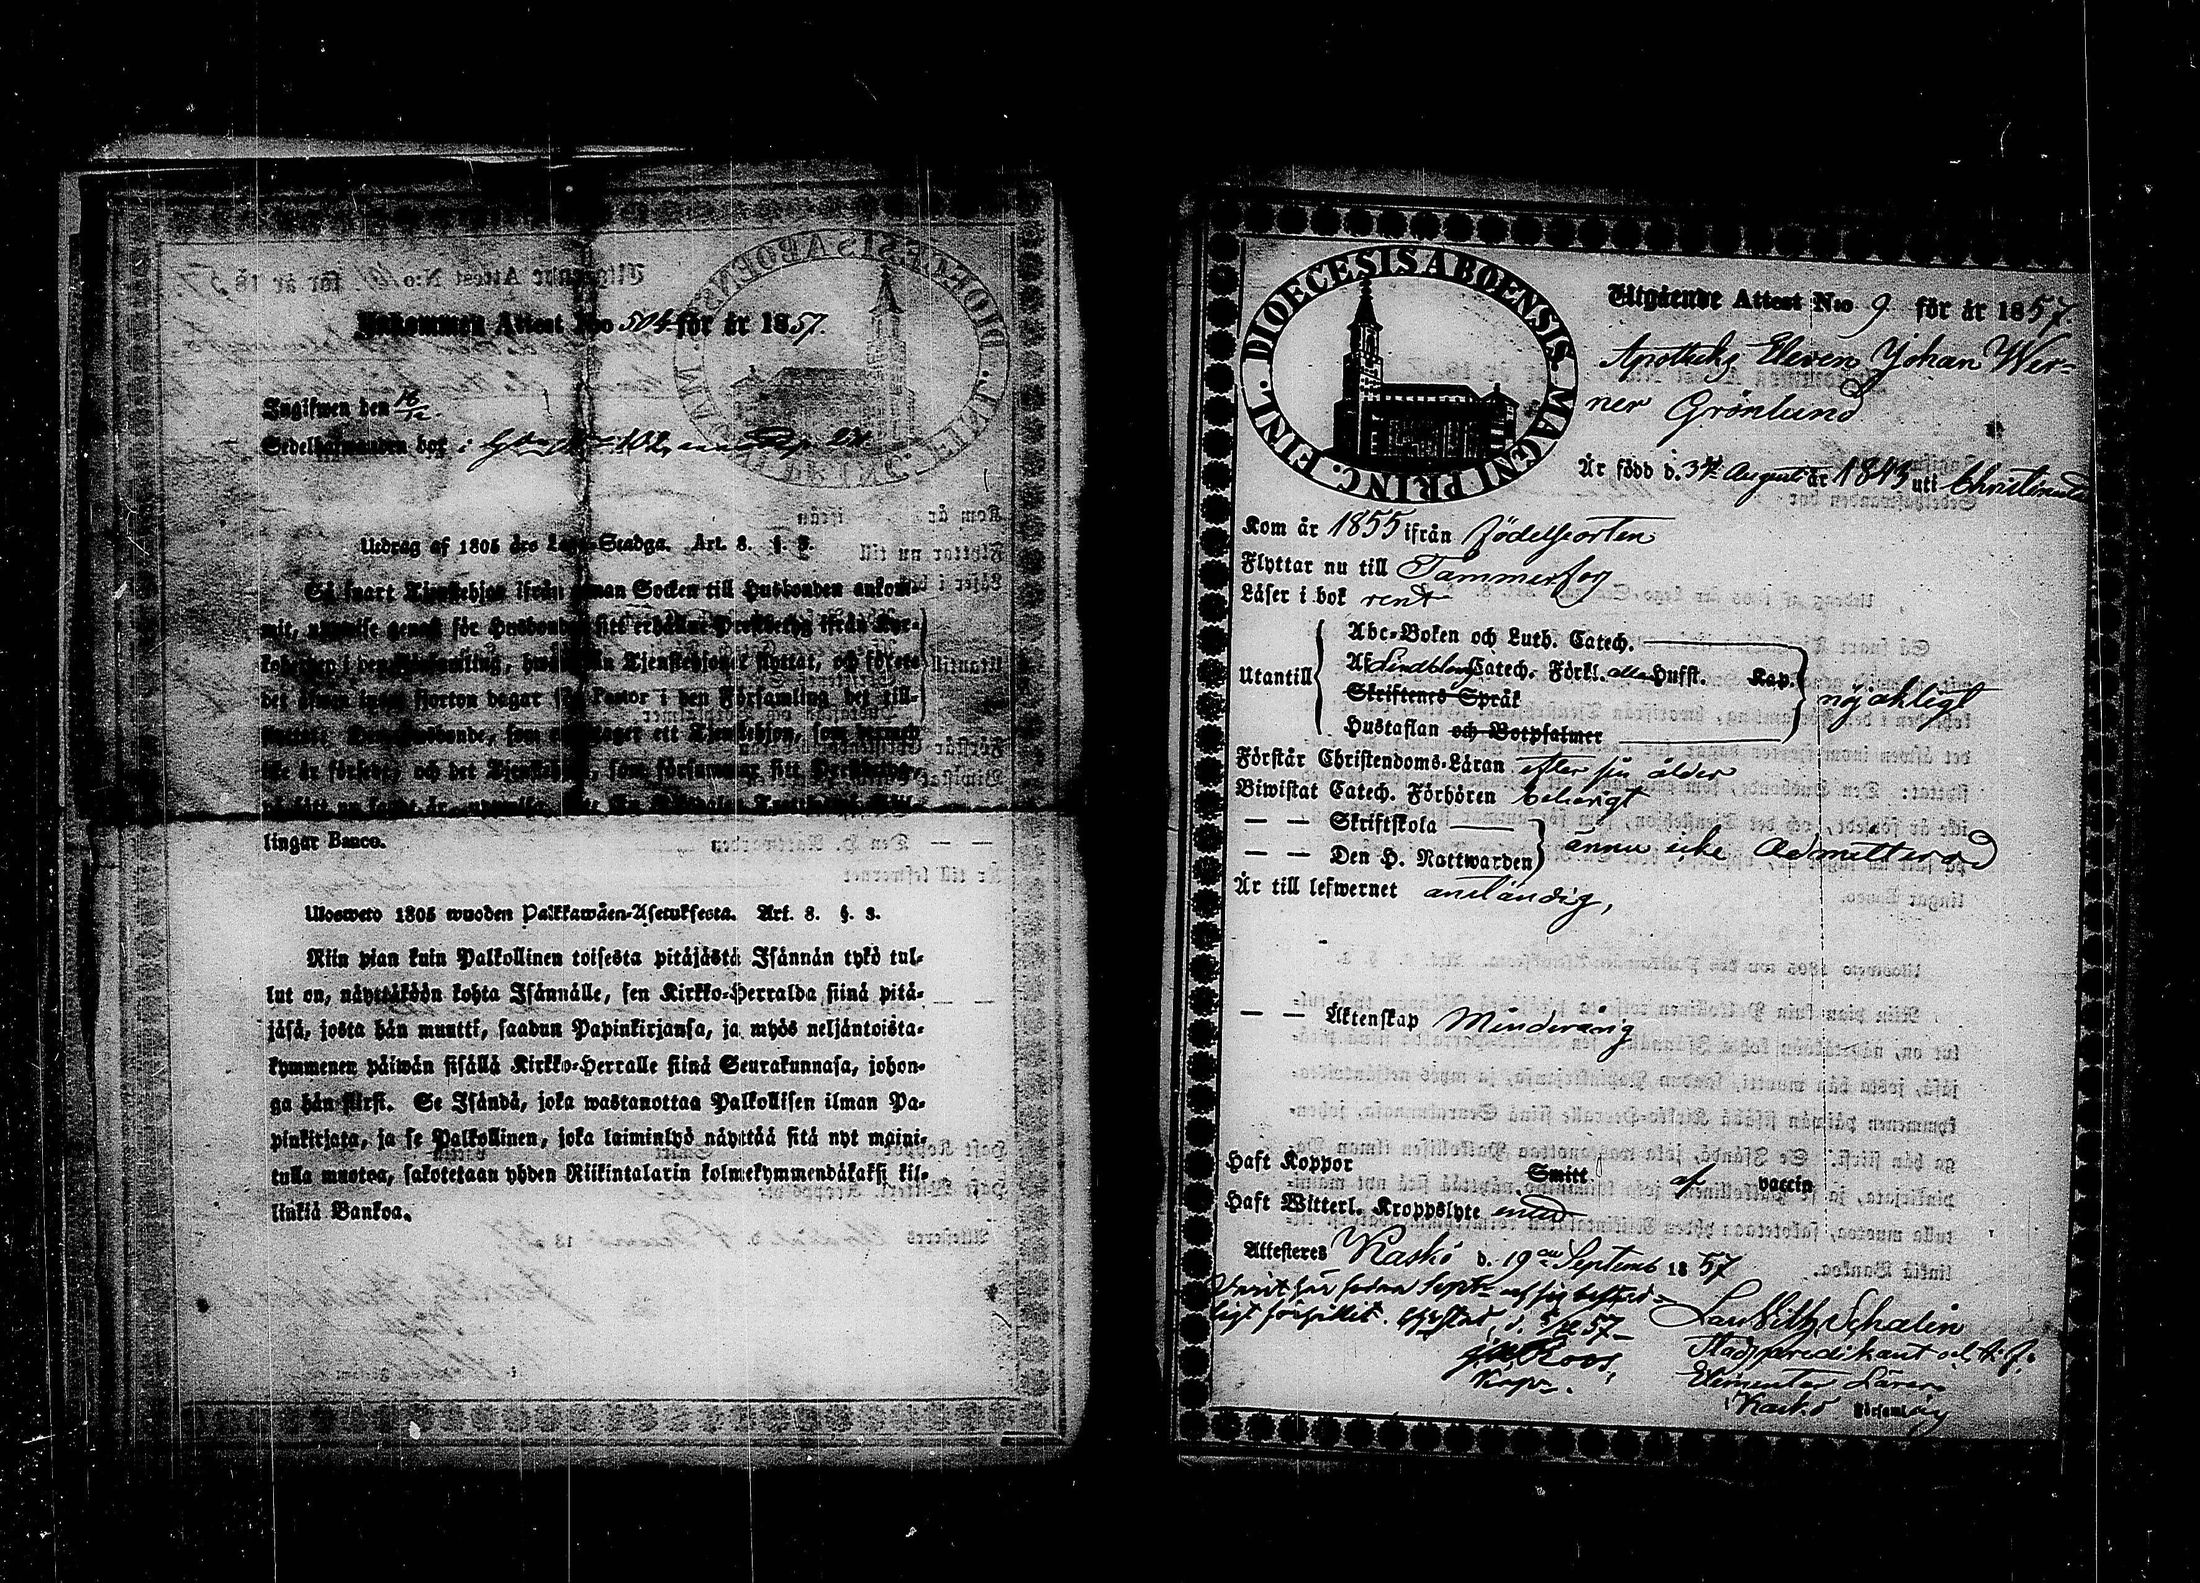 Inkommen Attest N:o 504 för år 1857.
Ingifwen den 16/12.
Sedelhafwanden bor i
Utdrag af 1805 års Lego-Stadga. Art. 8. §. 3.
Så snart Tjenstehjon ifrån annan Socken till Husbonden ankom-
mit, uppwise genast för Husbonden sitt erhållne Prestbetyg ifrån Kyr-
koherden i den Församling, hwarifrån Tjenstehjonet flyttat, och förete
det äfwen inom fjorton dagar för Pastor i den Församling det till-
flyttat: Den Husbonde, som emottager ett Tjenstehjon, som dermed
icke är försedt, och det Tjenstehjon, som försummar sitt Prestbetyg
på sätt nu sagdt är,
lingar Banco.
Ulosweto 1805 wuoden Palkkawäen-Asetuksesta. Art. 8. §. 3.
Niin pian kuin Palkollinen toisesta pitäjästä Isännän tykö tul-
lut on, näyttäköön kohta Isännälle, sen Kirkko-Herralda siinä pitä-
jäsä, josta hän muutti, saadun Papinkirjansa, ja myös neljäntoista-
kymmenen päiwän sisällä Kirkko-Herralle siinä Seurakunnasa, johon-
ga hän siirsi. Se Isändä, joka wastanottaa Palkollisen ilman Pa-
pinkirjata, ja se Palkollinen, joka laiminlyö näyttää sitä nyt maini-
tulla muotoa, sakotetaan yhden Riikintalarin kolmekymmendäkaksi kil-
linkiä Bankoa.
DIOECESIS ABOENSIS. MAGNI PRINC. FINL.
Utgående Attest N:o 9 för år 1857.
Apotheks Eleven Johan Wer-
ner Grönlund
Är född d. 31 Augusti år 1843 uti Christinestad
Kom år 1855 ifrån födelseorten
Flyttar nu till Tammerfors
Läser i bok rent
Utantill
Abc-Boken och Luth. Catech.
Af Lindbloms Catech. Förkl. alla Hufst. Kap.
Skriftenes Språk
Hustaflan och Botpsalmer
nöjaktigt
Förstår Christendoms-Läran efter sin ålder
Biwistat Catech. Förhören behörigt
— — Skriftskola
— — Den H. Nattwarden
ännu icke Admitterad
Är till lefwernet anständig,
— — Äktenskap Minderårig
Haft Koppor Smitt af vaccin
Haft Witterl. Kroppslyte intet
Attesteres Kaskö d. 19de Septemb 1857
Warit här sedan Sept. och sig bestäd-
ligt förhållit. d. 57
Roos,
Lars Wilh. Schalin
Stadspredikant och t. f.
Elementar Lärare
i Kaskö Församling